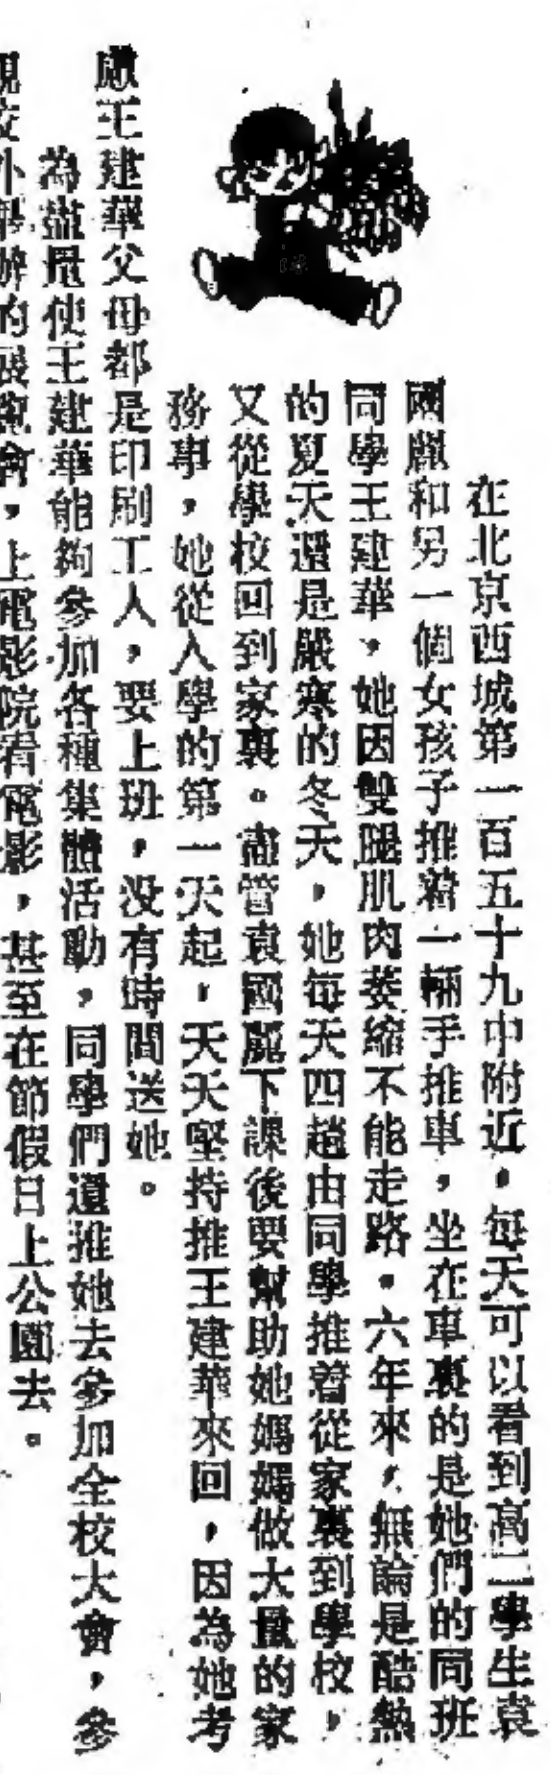 在北京西城第一百五十九中附近，每天可以看到高二學生袁
國麗和另一個女孩子推着一輛手推車，坐在車裏的是她們的同班
同學王建華，她因雙腿肌肉萎縮不能走路。六年來，無論是酷熱
的夏天還是嚴寒的冬天，她每天四趟由同學推着從家裏到學校，
又從學校回到家裏。儘管袁國麗下課後要幫助她媽媽做大量的家
務事，她從入學的第一天起，天天堅持推王建華來回，因為她考
慮王建華父母都是印刷工人，要上班，没有時間送她。
為儘量使王建華能夠參加各種集體活動，同學們還推她去參加全校大會，參
觀校外舉辦的展覽會，上電影院看電影，甚至在節假日上公園去。